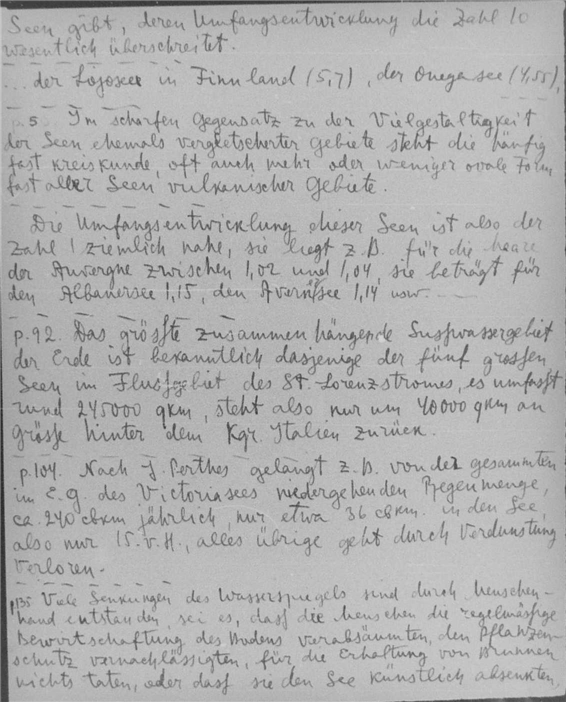 Seen gibt, deren Umfangsentwicklung die Zahl 10
wesentlich überschreitet.
... der Lojosee in Finnland (5,7), der Onegasee (4,55),
p.5 Im schärfen Gegensatz zu der Vielgestaltigkeit
der Seen ehemals vergletscherter Gebiete steht die häufig
fast kreiskunde, oft auch mehr oder weniger ovale Form
fast aller Seen vulkanischer Gebiete.
Die Umfangsentwicklung dieser Seen ist also der
Zahl 1 ziemlich nahe, sie liegt z.B. für die maare
der Auvergne zwischen 1,02 und 1,04, sie beträgt für
den Albanersee 1,15, den Avernersee 1,14 usw. ...
p.92. Das grösste zusammenhängende Susswassergebiet
der Erde ist bekanntlich dasjenige der fünf grossen
Seen im Flussgebiet des St. Lorenzstromes, es umfasst
rund 245000 qkm, steht also nur um 40000 qkm an
Grösse hinter dem Kgr. Italien zurück.
p.104. Nach J. Perthes gelangt z.B. von der gesammten
im E.g. des Victoriasees niedergehenden Regenmenge,
ca. 240 cbkm jährlich, nur etwa 36 cbkm. in den See
also nur 15. v.H., alles übrige geht durch Verdunstung
verloren.
p.135 Viele Senkungen des Wasserspiegels sind durch Menschen-
hand entstanden, sei es, dass die Menschen die regelmässige
Bewirtschaftung des Bodens verabsäumten, den Pflanzen-
schutz vernachlässigten, für die Erhaltung von Brunnen
nichts taten, oder dass sie den See künstlich absenkten.